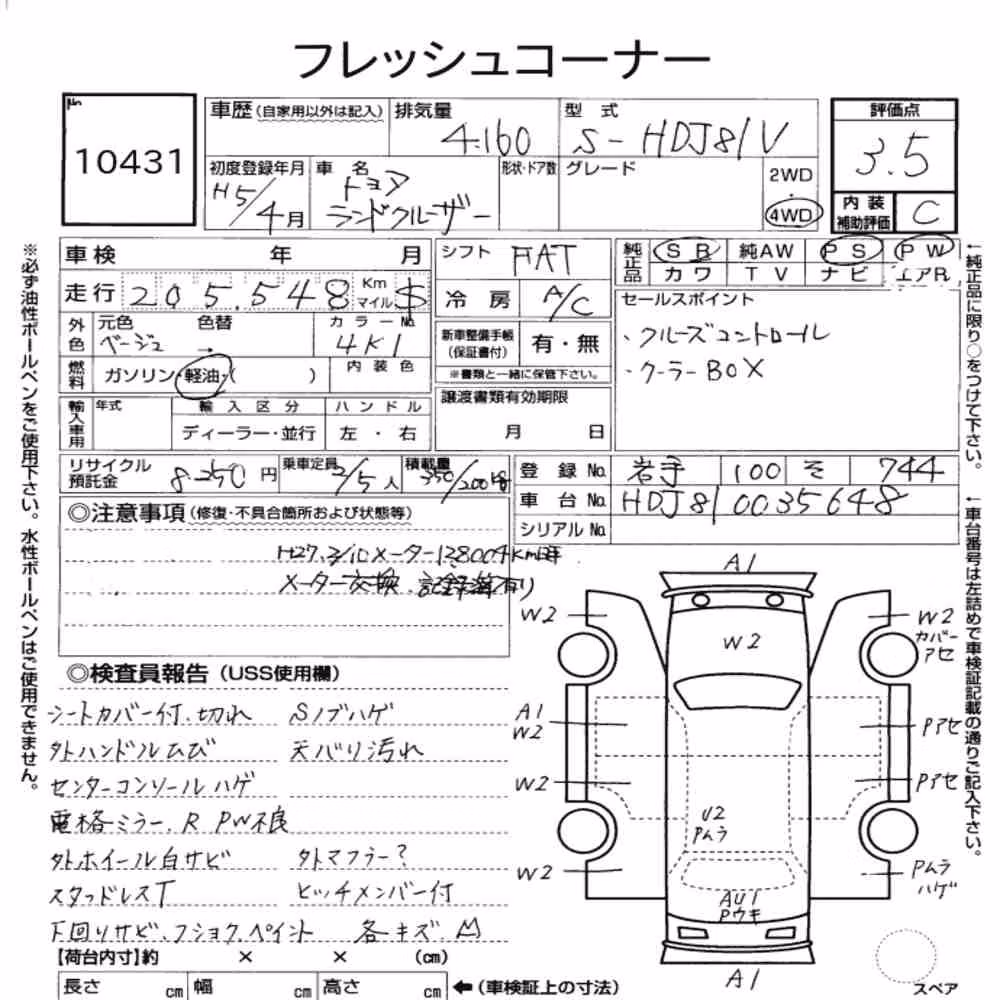 フレッシュコーナー
No
10431
車歴(自家用以外は記入)
排気量
4.160
型式
S-HDJ81V
評価点
3.5
初度登録年月
H5/4月
車名
トヨタ
ランドクルーザー
形状・ドア数
グレード
2WD
4WD
内装
補助評価
C
車検 年 月
シフト FAT
純正品
SR 純AW PS PW
カワ TV ナビ エアR
走行 205.548 Km マイル $
冷房 A/C
セールスポイント
・クルーズコントロール
・クーラーBOX
外色
元色 色替
ベージュ →
カラーNo.
4K1
新車整備手帳
(保証書付)
有・無
※書類と一緒に保管下さい。
燃料
ガソリン・軽油・( )
内装色
譲渡書類有効期限
月 日
輸入車用
年式
輸入区分
ディーラー・並行
ハンドル
左・右
リサイクル
預託金
8.250円
乗車定員
2/5人
積載量
350/200kg
登録No. 岩手 100 そ 744
車台No. HDJ81 0035648
シリアルNo.
◎注意事項(修復・不具合箇所および状態等)
H27.2/10メーター128004Km時
メーター交換.記録簿有り
◎検査員報告(USS使用欄)
シートカバー付.切れ Sノブハゲ
外ハンドルひび 天バリ汚れ
センターコンソールハゲ
電格ミラー.R PW不良
外ホイール白サビ 外マフラー?
スタッドレスT ヒッチメンバー付
下回りサビ.フショク.ペイント 各キズ.凹
【荷台内寸】約 × × (cm)
長さ cm 幅 cm 高さ cm
←(車検証上の寸法)
A1
W2
W2
W2
カバー
アセ
A1
W2
Pアセ
W2
Pアセ
U2
Pムラ
W2
Pムラ
ハゲ
AU1
Pウキ
A1
スペア
※必ず油性ボールペンをご使用下さい。水性ボールペンはご使用できません。
←純正品に限り○をつけて下さい。
←車台番号は左詰めで車検証記載の通りご記入下さい。